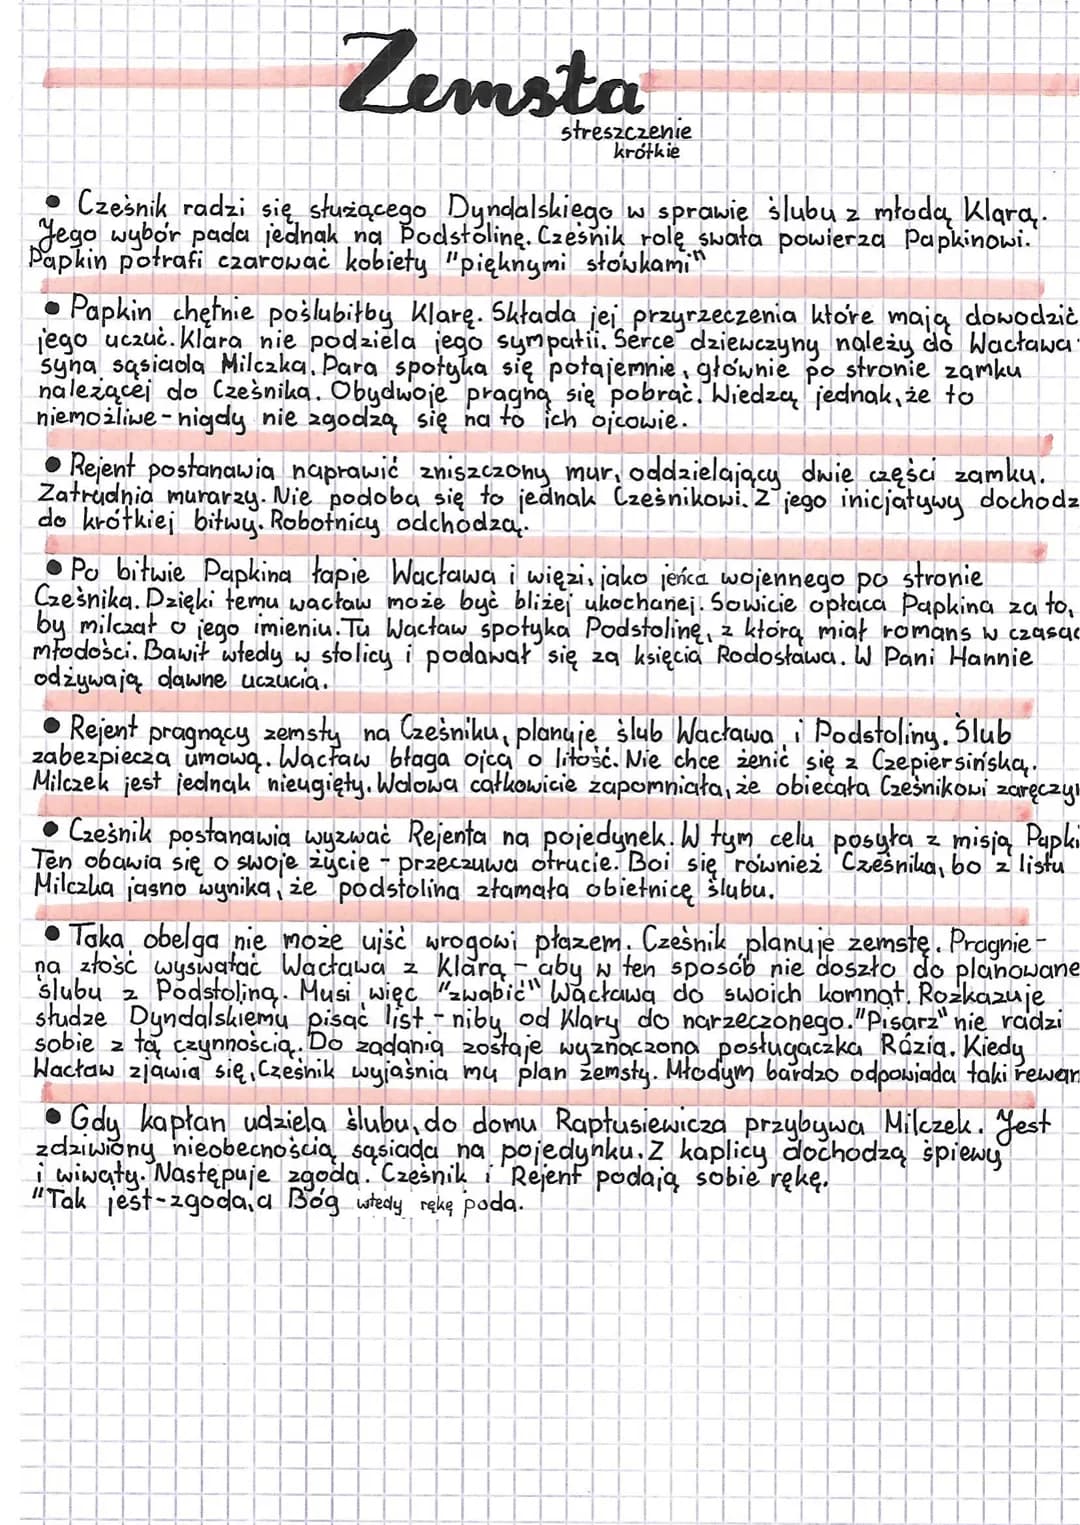 Zemsta
streszczenie
krótkie
• Cześnik radzi się służącego Dyndalskiego w sprawie ślubu z młodą Klarą.
Jego wybór pada jednak na Podstolinę. Cześnik rolę swata powierza Papkinowi.
Papkin potrafi czarować kobiety "pięknymi słówkami"
• Papkin chętnie poślubiłby Klarę. Składa jej przyrzeczenia które mają dowodzić
jego uczuć. Klara nie podziela jego sympatii. Serce dziewczyny należy do Wacława
syna sąsiada Milczka. Para spotyka się potajemnie, głównie po stronie zamku
należącej do Cześnika. Obydwoje pragną się pobrać. Wiedzą jednak, że to
niemożliwe - nigdy nie zgodzą się na to ich ojcowie.
• Rejent postanawia naprawić zniszczony mur, oddzielający dwie części zamku.
Zatrudnia murarzy. Nie podoba się to jednak Cześnikowi. Z jego inicjatywy dochodz
do krótkiej bitwy. Robotnicy odchodzą.
• Po bitwie Papkina łapie Wacława i więzi, jako jeńca wojennego po stronie
Cześnika. Dzięki temu wacław może być bliżej ukochanej. Sowicie opłaca Papkina za to,
by milczał o jego imieniu. Tu Wacław spotyka Podstolinę, z którą miał romans w czasac
młodości. Bawił wtedy w stolicy i podawał się za księcia Rodosława. W Pani Hannie
odżywają dawne uczucia.
• Rejent pragnący zemsty na Cześniku, planuje ślub Wacława i Podstoliny. Ślub
zabezpiecza umową. Wacław błaga ojca o litość. Nie chce żenić się z Czepiersińską.
Milczek jest jednak nieugięty. Wdowa całkowicie zapomniała, że obiecała Cześnikowi zaręczy
• Cześnik postanawia wyzwać Rejenta na pojedynek. W tym celu posyła z misją Papki
Ten obawia się o swoje życie - przeczuwa otrucie. Boi się również Cześnika, bo z listu
Milczka jasno wynika, że podstolina złamała obietnicę ślubu.
• Taka obelga nie może ujść wrogowi płazem. Cześnik planuje zemstę. Pragnie -
na złość wyswatać Wacława z Klarą - aby w ten sposób nie doszło do planowane
ślubu z Podstoliną. Musi więc "zwabić" Wacława do swoich komnat. Rozkazuje
słudze Dyndalskiemu pisać list - niby od Klary do narzeczonego. "Pisarz" nie radzi
sobie z tą czynnością. Do zadania zostaje wyznaczona posługaczka Rózia. Kiedy
Wacław zjawia się, Cześnik wyjaśnia mu plan zemsty. Młodym bardzo odpowiada taki rewan
• Gdy kapłan udziela ślubu, do domu Raptusiewicza przybywa Milczek. Jest
zdziwiony nieobecnością sąsiada na pojedynku. Z kaplicy dochodzą śpiewy
i wiwaty. Następuje zgoda. Cześnik i Rejent podają sobie rękę.
"Tak jest - zgoda, a Bóg wtedy rękę poda.